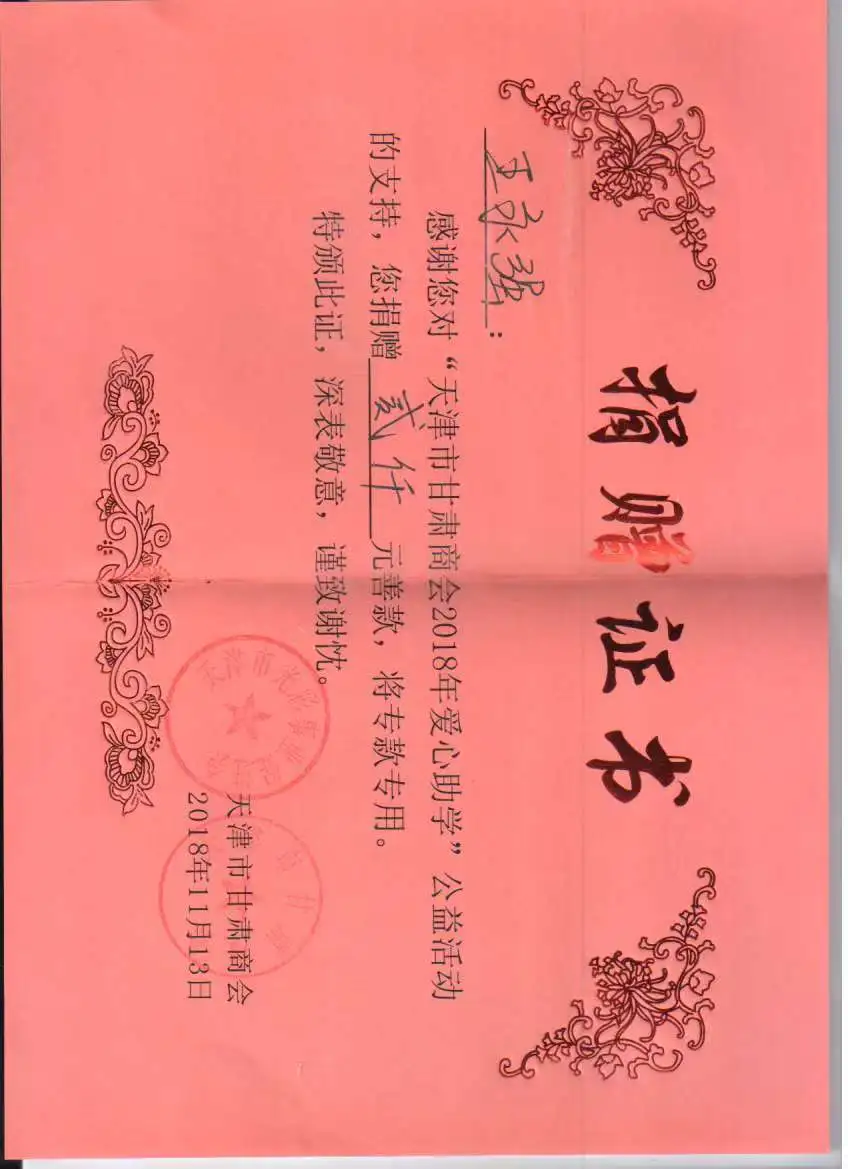 捐赠证书
王永强:
感谢您对“天津市甘肃商会2018年爱心助学”公益活动
的支持,您捐赠贰仟元善款,将专款专用。
特颁此证,深表敬意,谨致谢忱。
天津市甘肃商会
2018年11月13日
天津市光彩事业